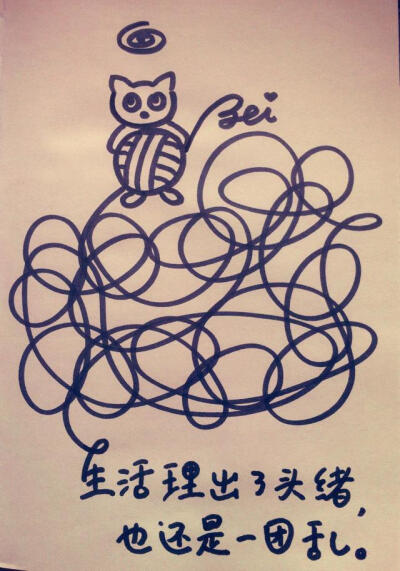 Bei
生活理出了头绪,
也还是一团乱。